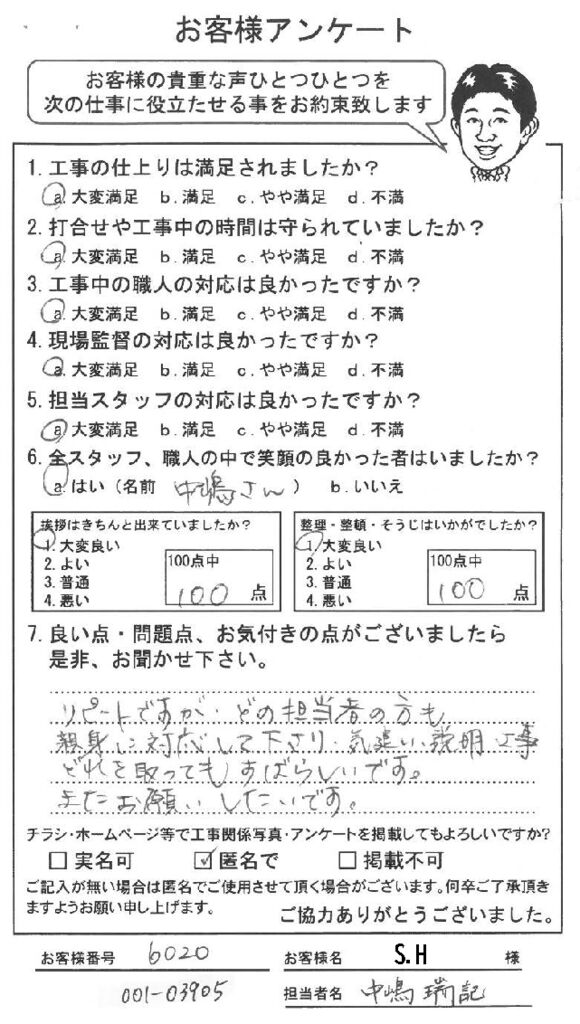 お客様アンケート
お客様の貴重な声ひとつひとつを
次の仕事に役立たせる事をお約束致します
1. 工事の仕上りは満足されましたか？
a. 大変満足 b. 満足 c. やや満足 d. 不満
2. 打合せや工事中の時間は守られていましたか？
a. 大変満足 b. 満足 c. やや満足 d. 不満
3. 工事中の職人の対応は良かったですか？
a. 大変満足 b. 満足 c. やや満足 d. 不満
4. 現場監督の対応は良かったですか？
a. 大変満足 b. 満足 c. やや満足 d. 不満
5. 担当スタッフの対応は良かったですか？
a. 大変満足 b. 満足 c. やや満足 d. 不満
6. 全スタッフ、職人の中で笑顔の良かった者はいましたか？
a. はい（名前 中嶋さん ） b. いいえ
挨拶はきちんと出来ていましたか？
1. 大変良い
2. よい
3. 普通
4. 悪い
100点中
100 点
整理・整頓・そうじはいかがでしたか？
1. 大変良い
2. よい
3. 普通
4. 悪い
100点中
100 点
7. 良い点・問題点、お気付きの点がございましたら
是非、お聞かせ下さい。
リピートですが、どの担当者の方も
親身に対応して下さり、気遣い、説明、工事
どれを取ってもすばらしいです。
またお願いしたいです。
チラシ・ホームページ等で工事関係写真・アンケートを掲載してもよろしいですか？
□ 実名可 ☑ 匿名で □ 掲載不可
ご記入が無い場合は匿名でご使用させて頂く場合がございます。何卒ご了承頂き
ますようお願い申し上げます。 ご協力ありがとうございました。
お客様番号 6020 お客様名 S.H 様
001-03905 担当者名 中嶋 瑞記